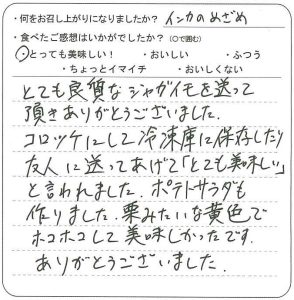 ・何をお召し上がりになりましたか？ インカのめざめ
・食べたご感想はいかがでしたか？（○で囲む）
・とっても美味しい！ ・おいしい ・ふつう
・ちょっとイマイチ ・おいしくない
とても良質なジャガイモを送って
頂きありがとうございました.
コロッケにして冷凍庫に保存したり
友人に送ってあげて「とても美味しい」
と言われました. ポテトサラダも
作りました. 栗みたいな黄色で
ホコホコして美味しかったです.
ありがとうございました.